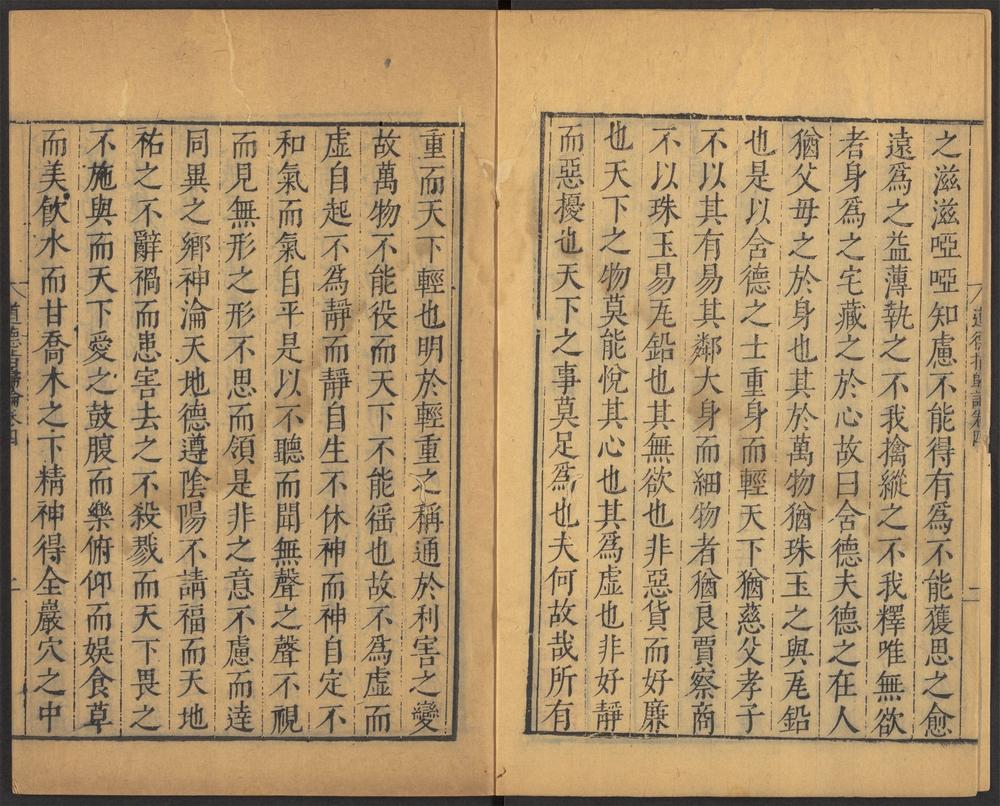 道德指歸論卷四
二
之滋滋啞啞知慮不能得有爲不能獲思之愈
遠爲之益薄執之不我擒縱之不我釋唯無欲
者身爲之宅藏之於心故曰含德夫德之在人
猶父毋之於身也其於萬物猶珠玉之與瓦鉛
也是以含德之士重身而輕天下猶慈父孝子
不以其有易其鄰大身而細物者猶良賈察商
不以珠玉易瓦鉛也其無欲也非惡貨而好廉
也天下之物莫能悅其心也其爲虛也非好靜
而惡擾也天下之事莫足爲也夫何故哉所有
重而天下輕也明於輕重之稱通於利害之變
故萬物不能役而天下不能徭也故不爲虛而
虛自起不爲靜而靜自生不休神而神自定不
和氣而氣自平是以不聽而聞無聲之聲不視
而見無形之形不思而領是非之意不慮而達
同異之鄉神淪天地德遵陰陽不請福而天地
祐之不辭禍而患害去之不殺戮而天下畏之
不施與而天下愛之鼓腹而樂俯仰而娛食草
而美飲水而甘喬木之下精神得全巖穴之中
道德指歸論卷四